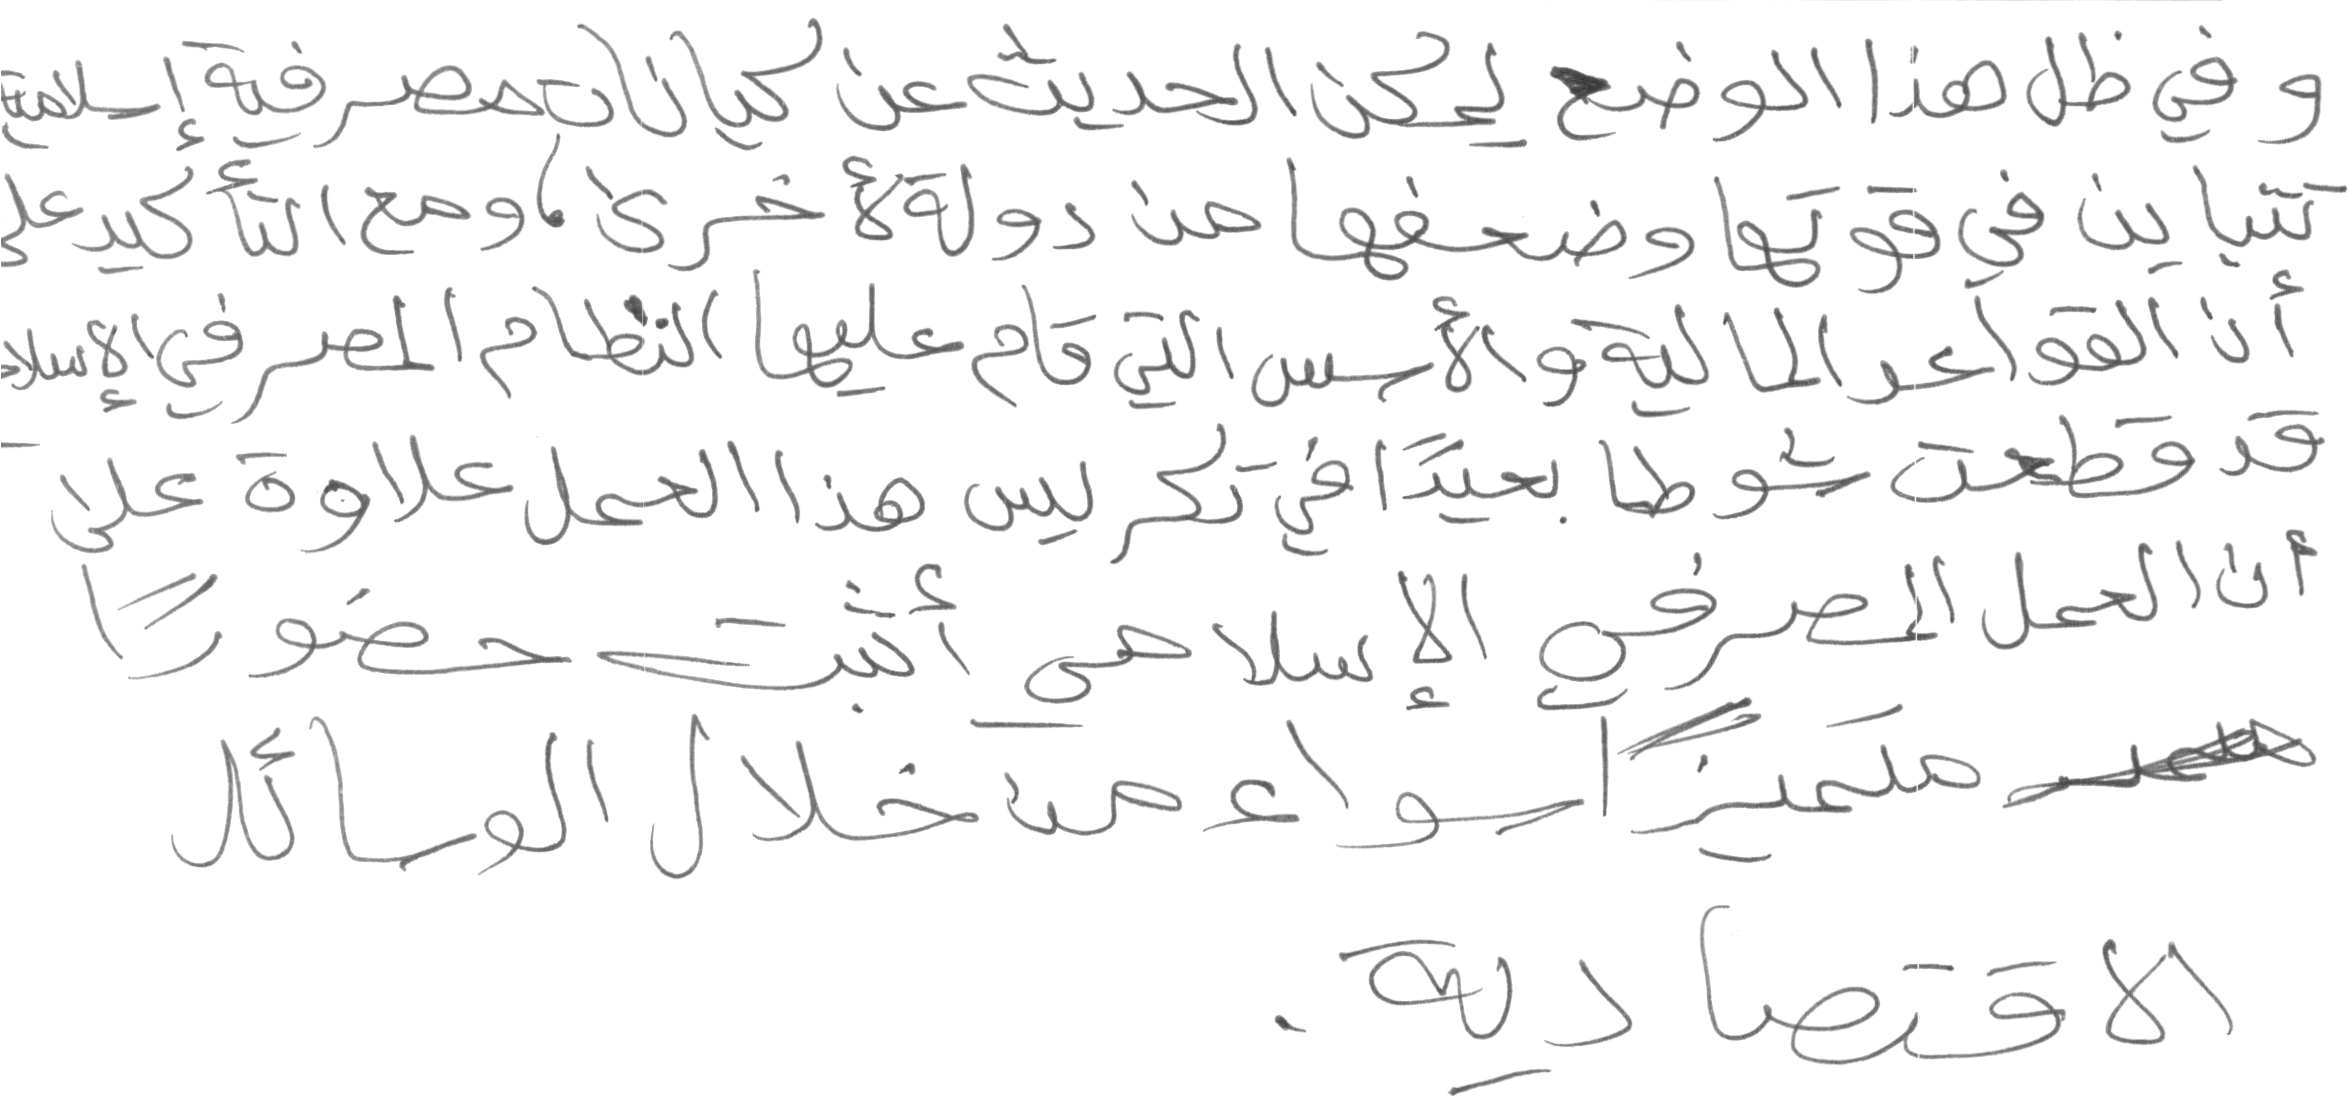 وفي ظل هذا الوضع يمكن الحديث عن كيانات مصرفية إسلامية
تتباين في قوتها وضعفها من دولة لأخرى، ومع التأكيد على
أن القواعد المالية والأسس التي قام عليها النظام المصرفي الإسلا
قد قطعت شوطا بعيدًا في تكريس هذا العمل علاوة على
أن العمل المصرفي الإسلامي أثبت حضورًا
متميزًا سواء من خلال الوسائل
الاقتصادية.